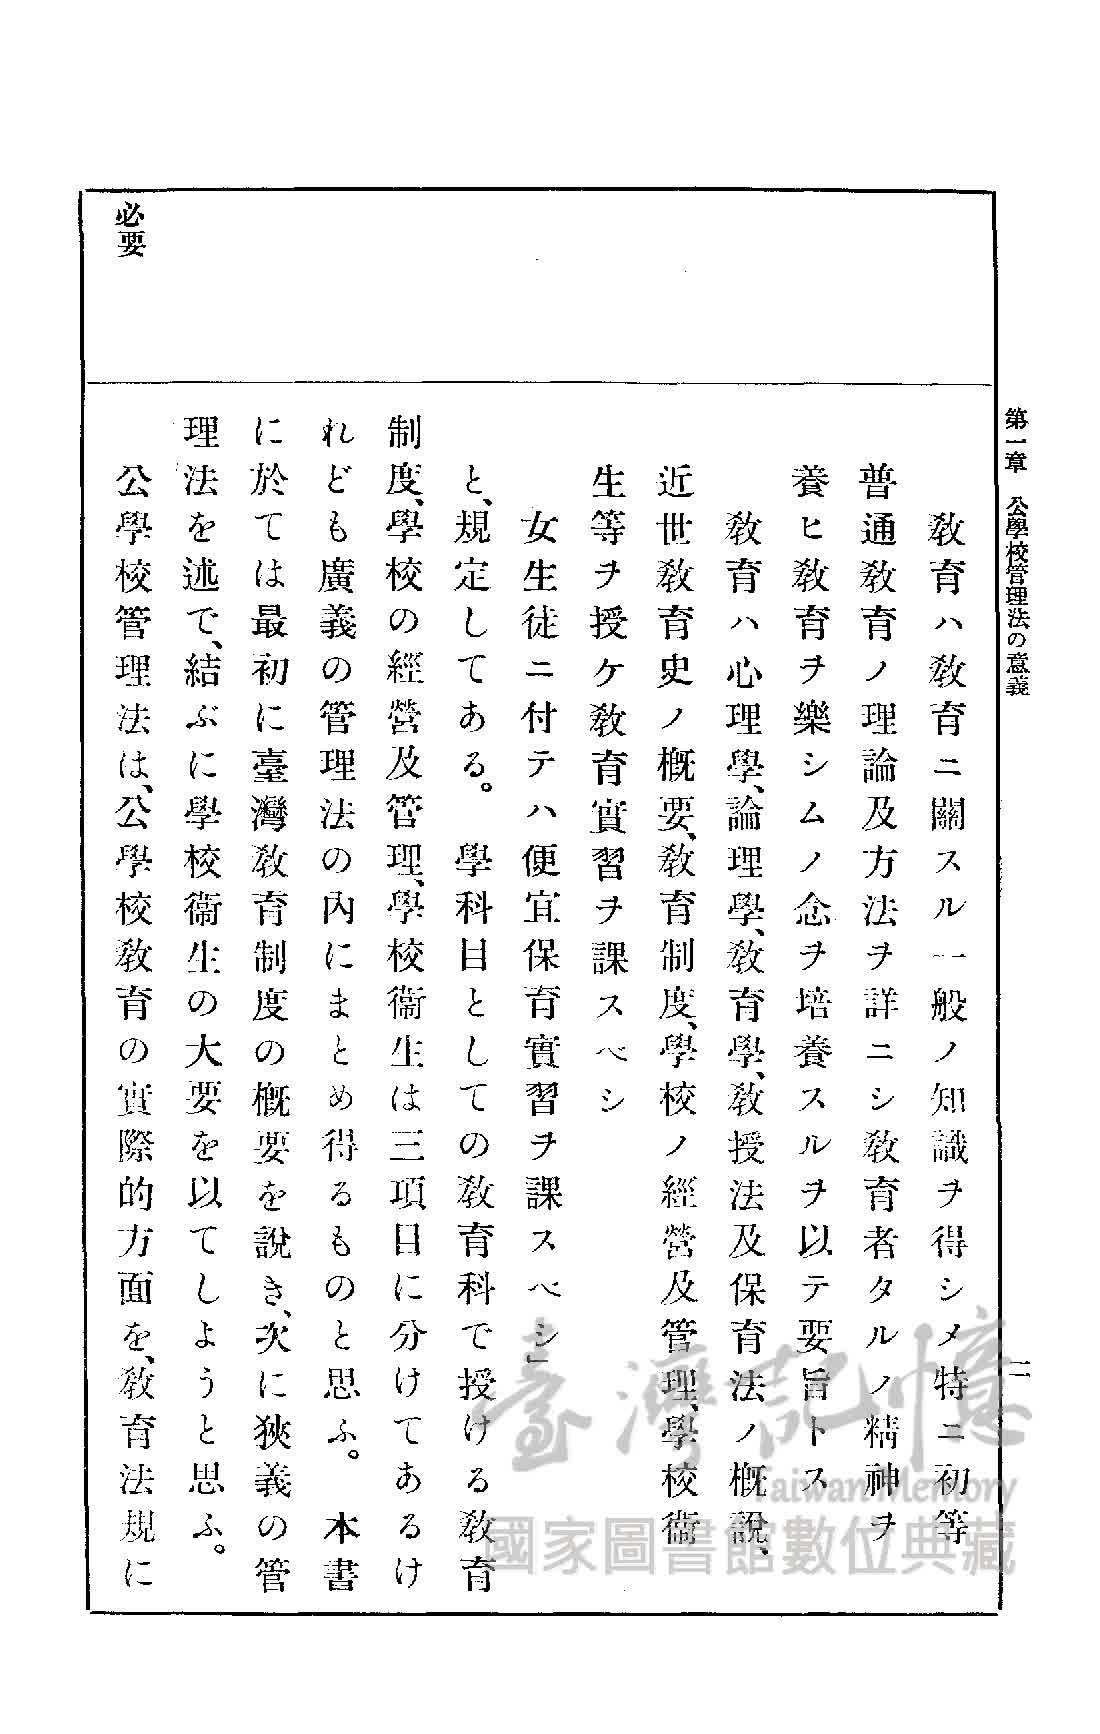 第一章 公學校管理法の意義
二
敎育ハ敎育ニ關スル一般ノ知識ヲ得シメ特ニ初等
普通敎育ノ理論及方法ヲ詳ニシ敎育者タルノ精神ヲ
養ヒ敎育ヲ樂シムノ念ヲ培養スルヲ以テ要旨トス
敎育ハ心理學、論理學、敎育學、敎授法及保育法ノ槪說、
近世敎育史ノ槪要、敎育制度、學校ノ經營及管理、學校衞
生等ヲ授ケ敎育實習ヲ課スベシ
女生徒ニ付テハ便宜保育實習ヲ課スベシ」
と、規定してある。 學科目としての敎育科で授ける敎育
制度、學校の經營及管理、學校衞生は三項目に分けてあるけ
れども廣義の管理法の內にまとめ得るものと思ふ。 本書
に於ては最初に臺灣敎育制度の槪要を說き、次に狹義の管
理法を述で、結ぶに學校衞生の大要を以てしようと思ふ。
必要
公學校管理法は、公學校敎育の實際的方面を、敎育法規に
臺灣記憶
Taiwan Memory
國家圖書館數位典藏